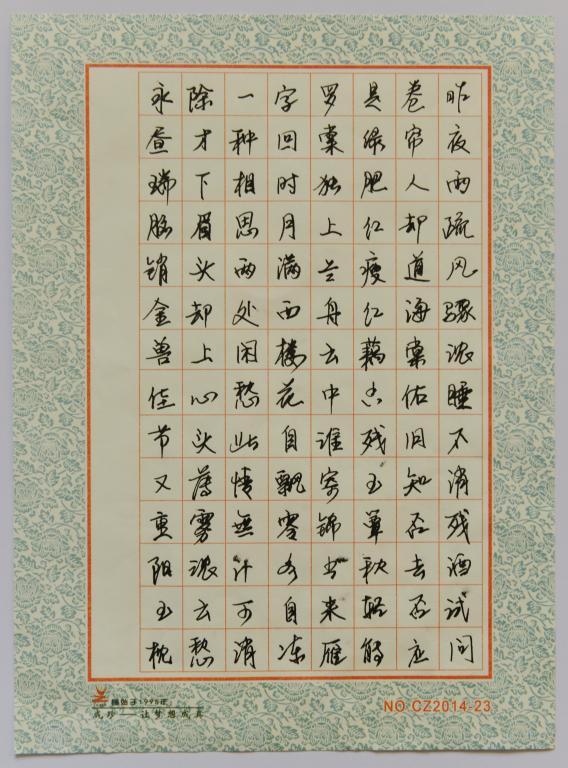 昨夜雨疏风骤浓睡不消残酒试问
卷帘人却道海棠依旧知否去否应
是绿肥红瘦红藕香残玉簟秋轻解
罗裳独上兰舟云中谁寄锦书来雁
字回时月满西楼花自飘零水自
一种相思两处闲愁此情無计可消
除才下眉头却上心头薄雾浓云愁
永昼瑞脑销金兽佳节又重阳玉枕
始于1995年
成珍——让梦想成真
NO.CZ2014-23